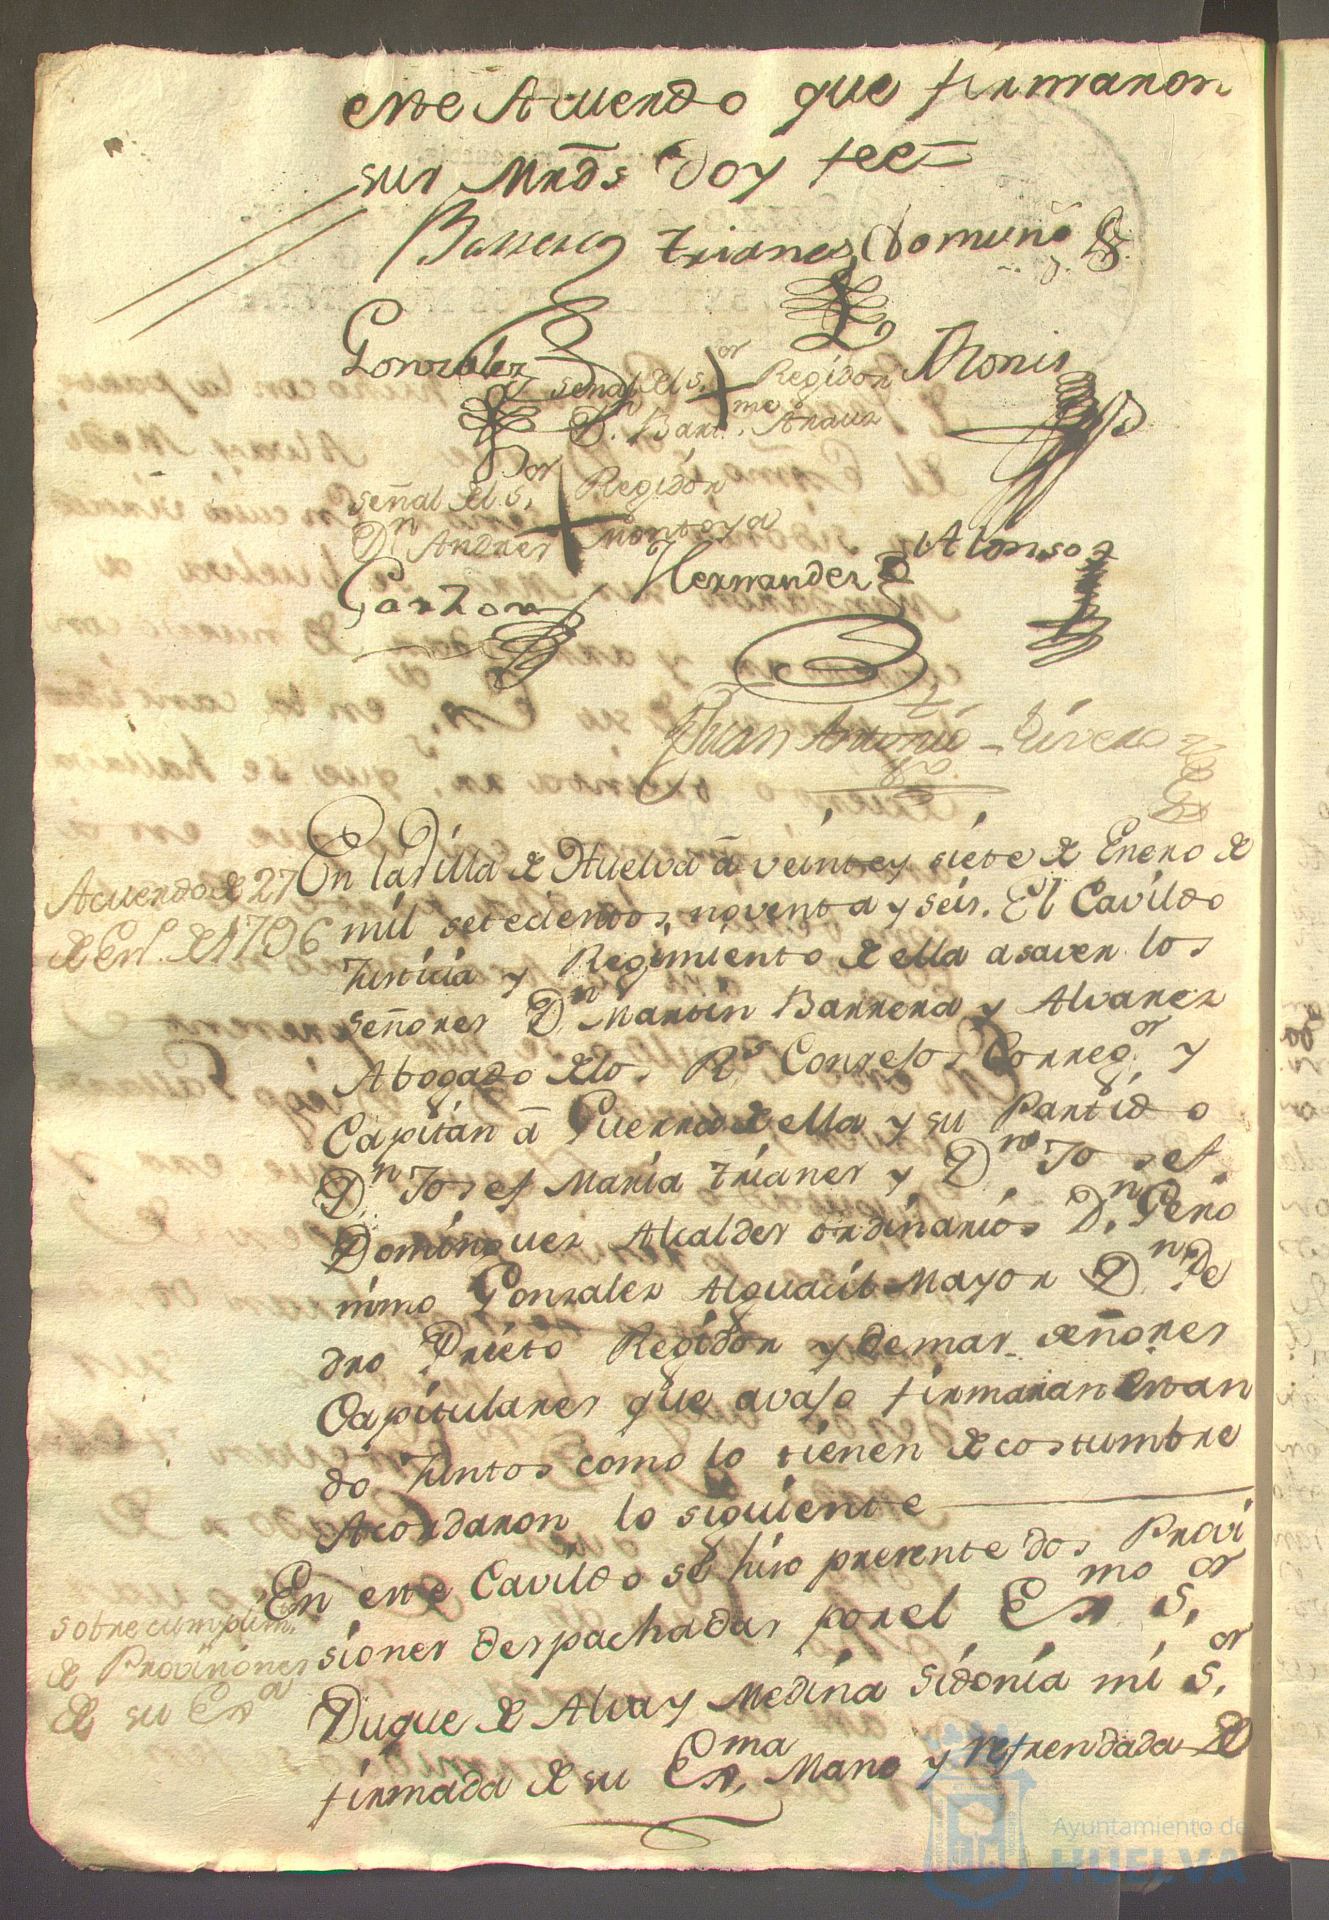 este Acuerdo que firmaron
sus Mrds doy fee=
Barrera Trianes Domíng
Gonzalez
señal del s.or Regidor
Dn. Bart.me Arauz
Thoris
señal del s.or Regidor
Dn Andres Montoya
Garzon
Hernandez
Alonso
Juan Antonio Rivera
Acuerdo de 27
de En. de 1796
En la Villa de Huelva â veinte y siete de Enero de
mil setecientos, noventa y seis. El Cavildo
Justicia y Regimiento de ella asaver los
señores Dn. Martin Barrera y Alvarez
Abogado de los Rs. Consejos Correg.or y
Capitán â Guerra de ella y su Partido
Dn. Josef Maria Trianes y Dn Josef
Dominguez Alcaldes ordinarios Dn. Gero
nimo Gonzalez Alguacil Mayor Dn. Pe
dro Prieto Regidor y demas señores
Capitulares que avajo firmaran estan
do Juntos como lo tienen de costumbre
Acordaron lo siguiente
sobre cumplim.
de Provisiones
de su Exa
En este Cavildo se hizo presente dos Provi
siones despachadas por el Exmo S.or
Duque de Alva y Medina Sidonia mi S.or
firmada de su Exma. Mano y refrendada de
Ayuntamiento de
HUELVA